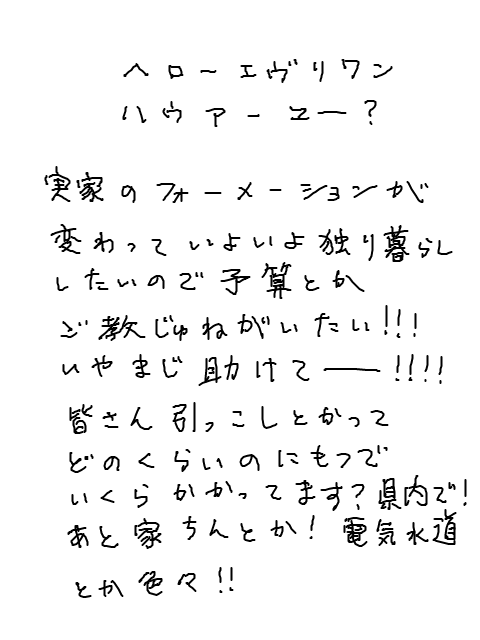 ヘローエヴリワン
ハウアーユー?
実家のフォーメーションが
変わっていよいよ独り暮らし
したいので予算とか
ご教じゅねがいたい!!!
いやまじ助けてー!!!!
皆さん引っこしとかって
どのくらいのにもつで
いくらかかってます?県内で!
あと家ちんとか!電気水道
とか色々!!